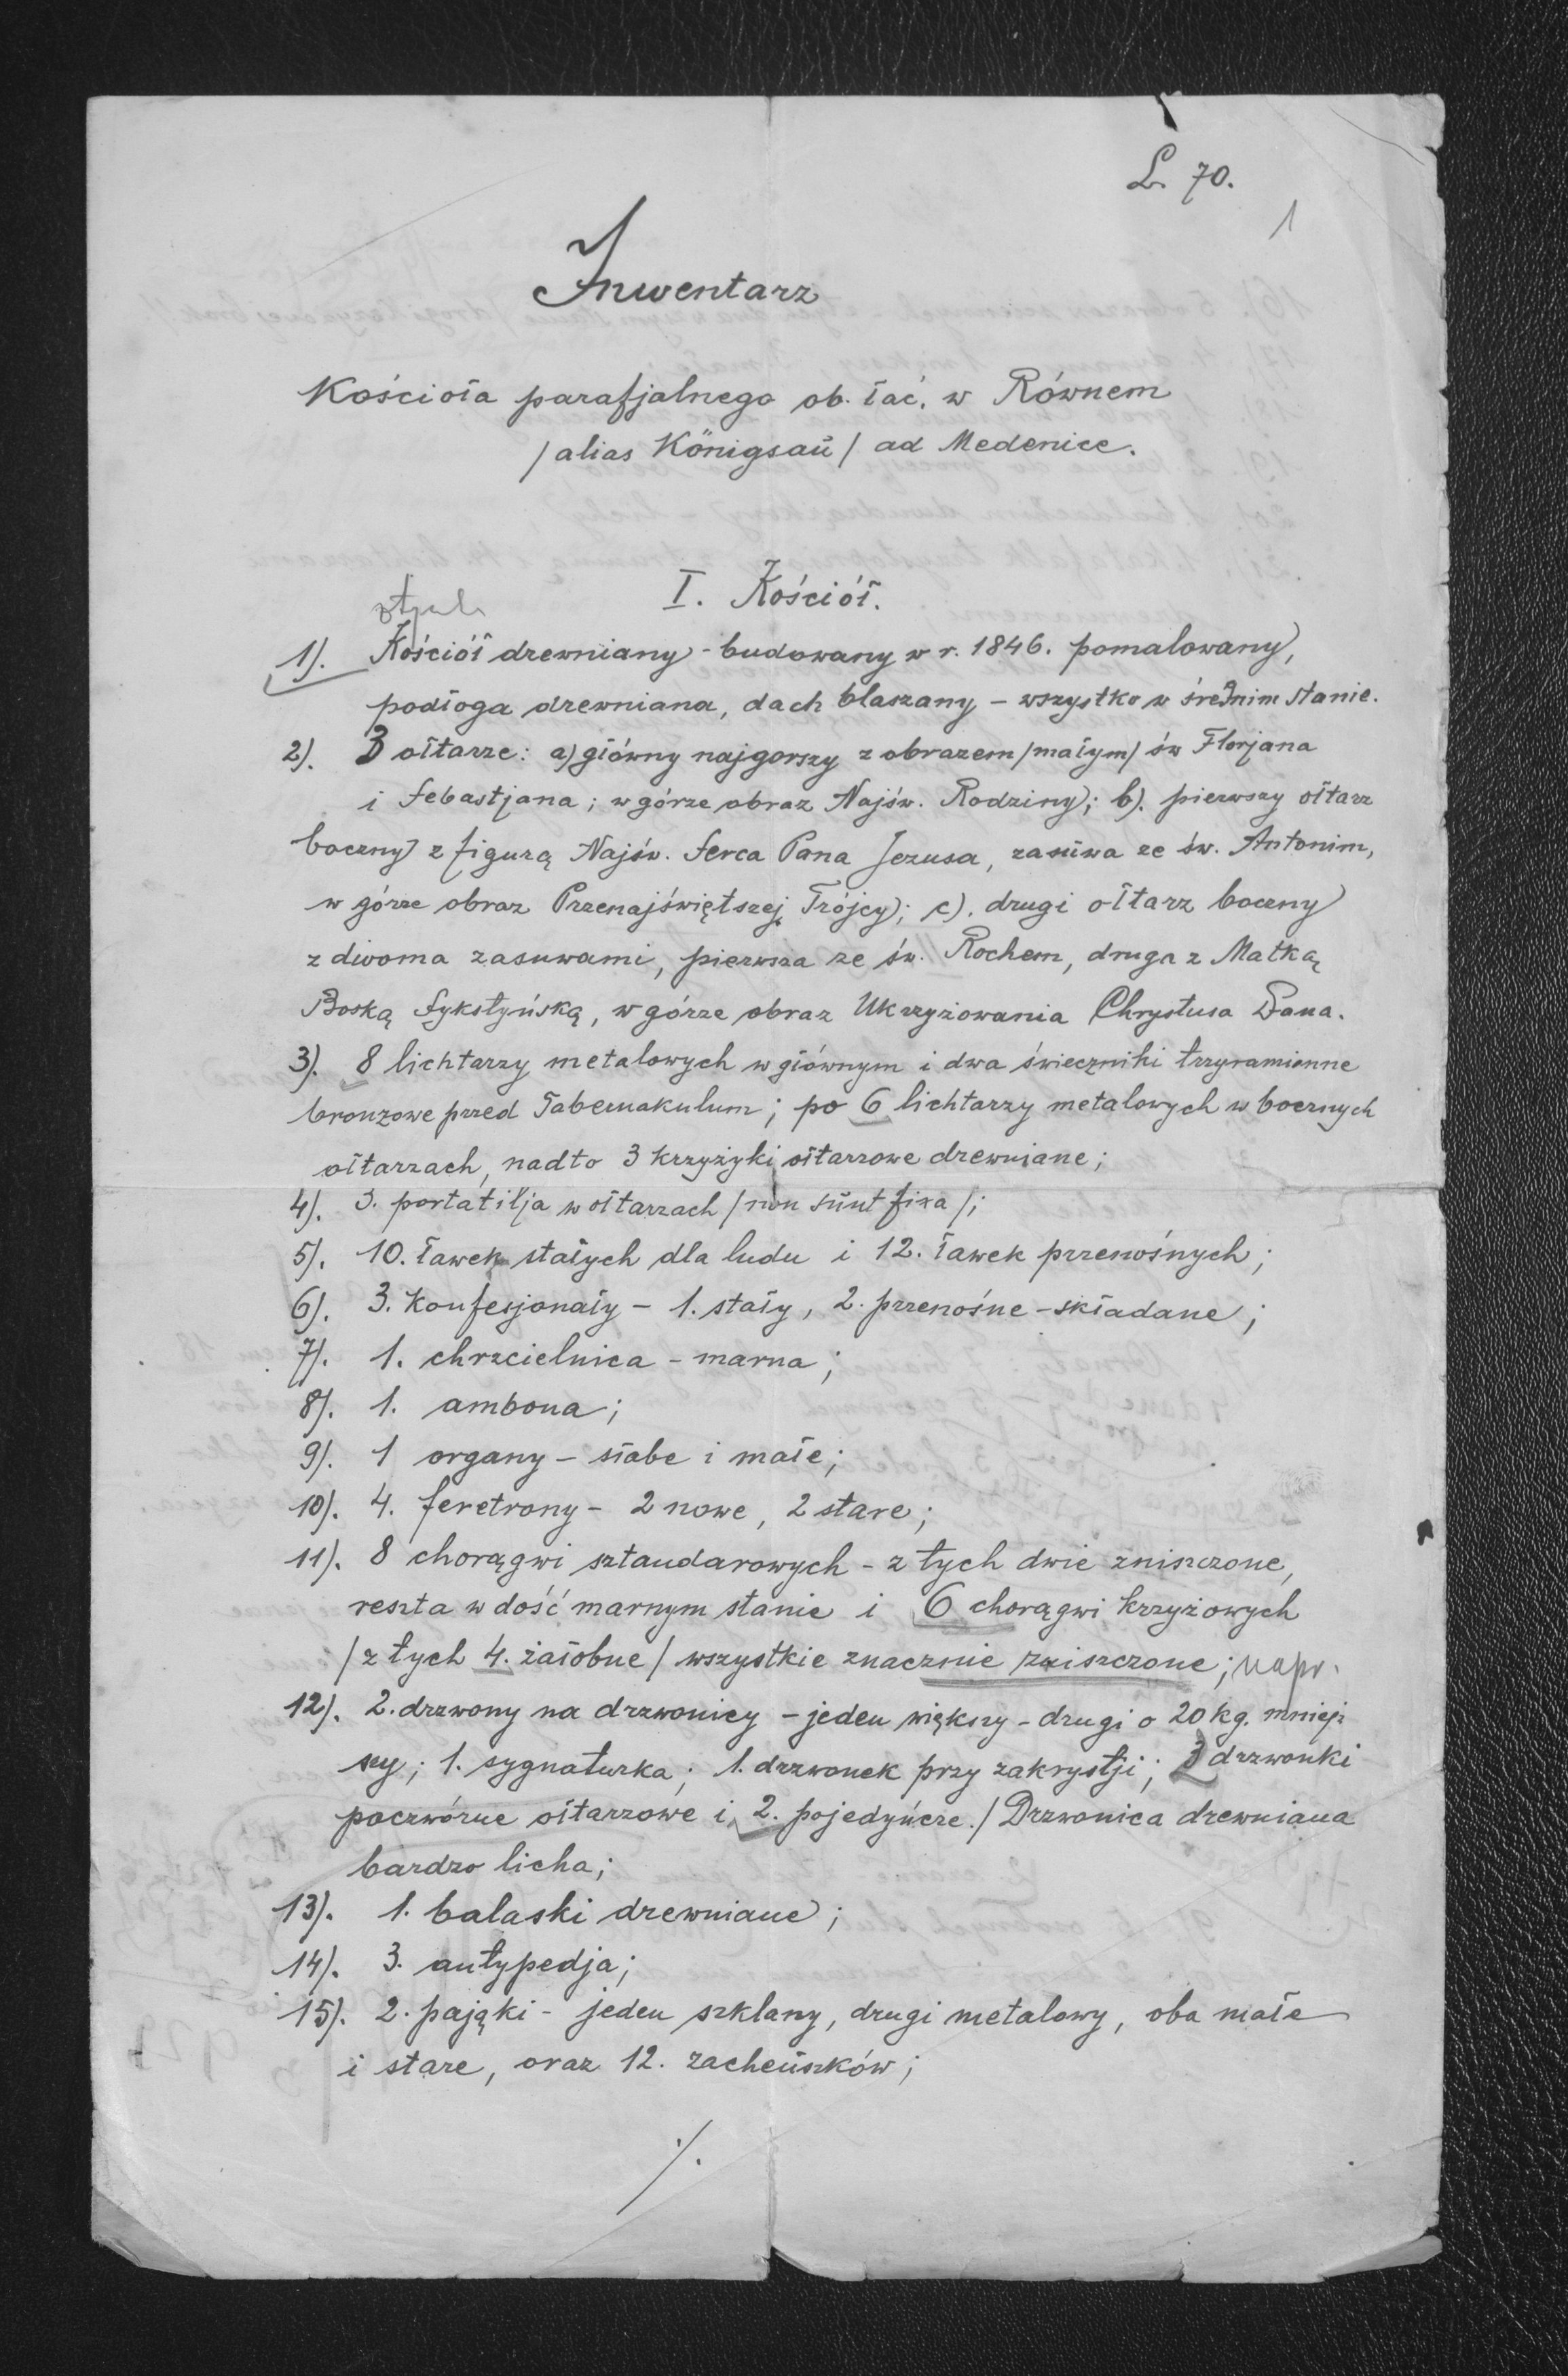 L. 70.
1
Inwentarz
Kościoła parafjalnego ob. łać. w Równem
/alias Königsaŭ/ ad Medenice.
I. Kościół.
1). Kościół drewniany - budowany w r. 1846. pomalowany,
podłoga drewniana, dach blaszany – wszystko w średnim stanie.
2). 3 ołtarze: a) główny najgorszy z obrazem /małym/ św Florjana
i Sebastjana; w górze obraz Najśw. Rodziny; b). pierwszy ołtarz
boczny z figurą Najśw. Serca Pana Jezusa, zasŭwa ze św. Antonim,
w górze obraz Przenajświętszej Trójcy; c). drugi ołtarz boczny
z dwoma zasuwami, pierwsza ze św. Rochem, druga z Matką
Boską Sykstyńską, w górze obraz Ukrzyżowania Chrystusa Pana.
3). 8 lichtarzy metalowych w głównym i dwa świeczniki trzyramienne
bronzowe przed Tabernakulum; po 6 lichtarzy metalowych w bocznych
ołtarzach, nadto 3 krzyżyki ołtarzowe drewniane;
4). 3. portatilja w ołtarzach /non sŭnt fixa/;
5). 10. ławek stałych dla ludu i 12. ławek przenośnych;
6). 3. konfesjonały – 1. stały, 2. przenośne - składane;
7). 1. chrzcielnica - marna;
8). 1. ambona;
9). 1 organy – słabe i małe;
10). 4. feretrony - 2 nowe, 2 stare;
11). 8 chorągwi sztandarowych - z tych dwie zniszczone,
reszta w dość marnym stanie i 6 chorągwi krzyżowych
/z tych 4. żałobne/ wszystkie znacznie zniszczone; napr.
12). 2. dzwony na dzwonicy – jeden większy - drugi o 20 kg. mniej
szy; 1. sygnaturka; 1. dzwonek przy zakrystji; 3 dzwonki
poczwórne ołtarzowe i 2. pojedyńcze./ Dzwonica drewniana
bardzo licha;
13). 1. balaski drewniane;
14). 3. antypedja;
15). 2. pająki - jeden szklany, drugi metalowy, oba małe
i stare, oraz 12. zacheŭszków;
./.